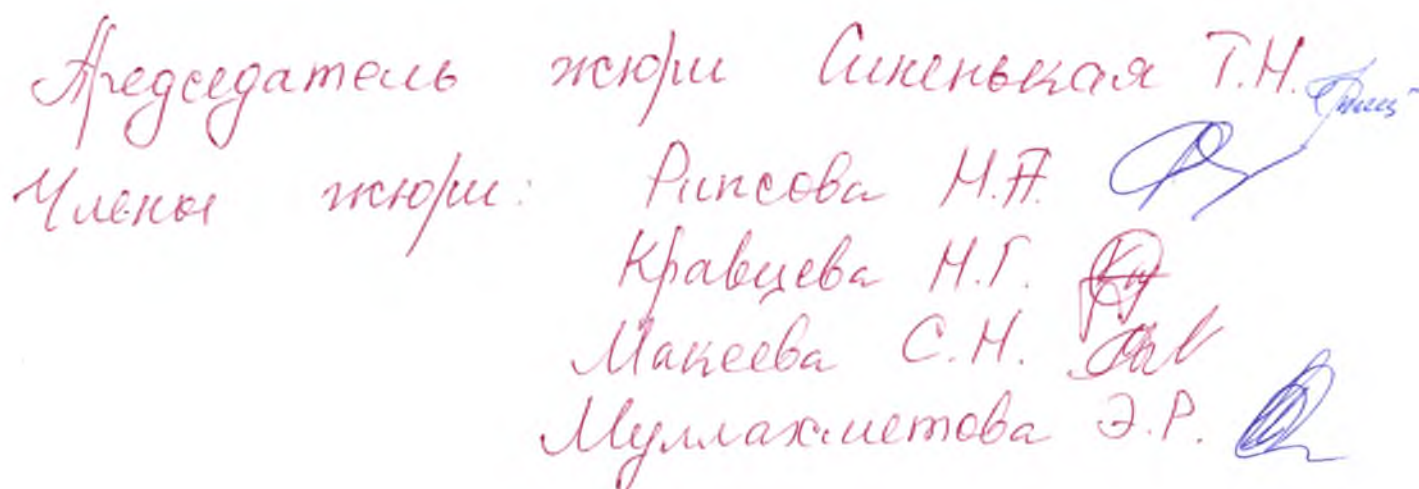 Председатель жюри Синенькая Т.Н.
Члены жюри: Рипсова Н.А.
Кравцева Н.Г.
Макеева С.Н.
Муллахметова Э.Р.